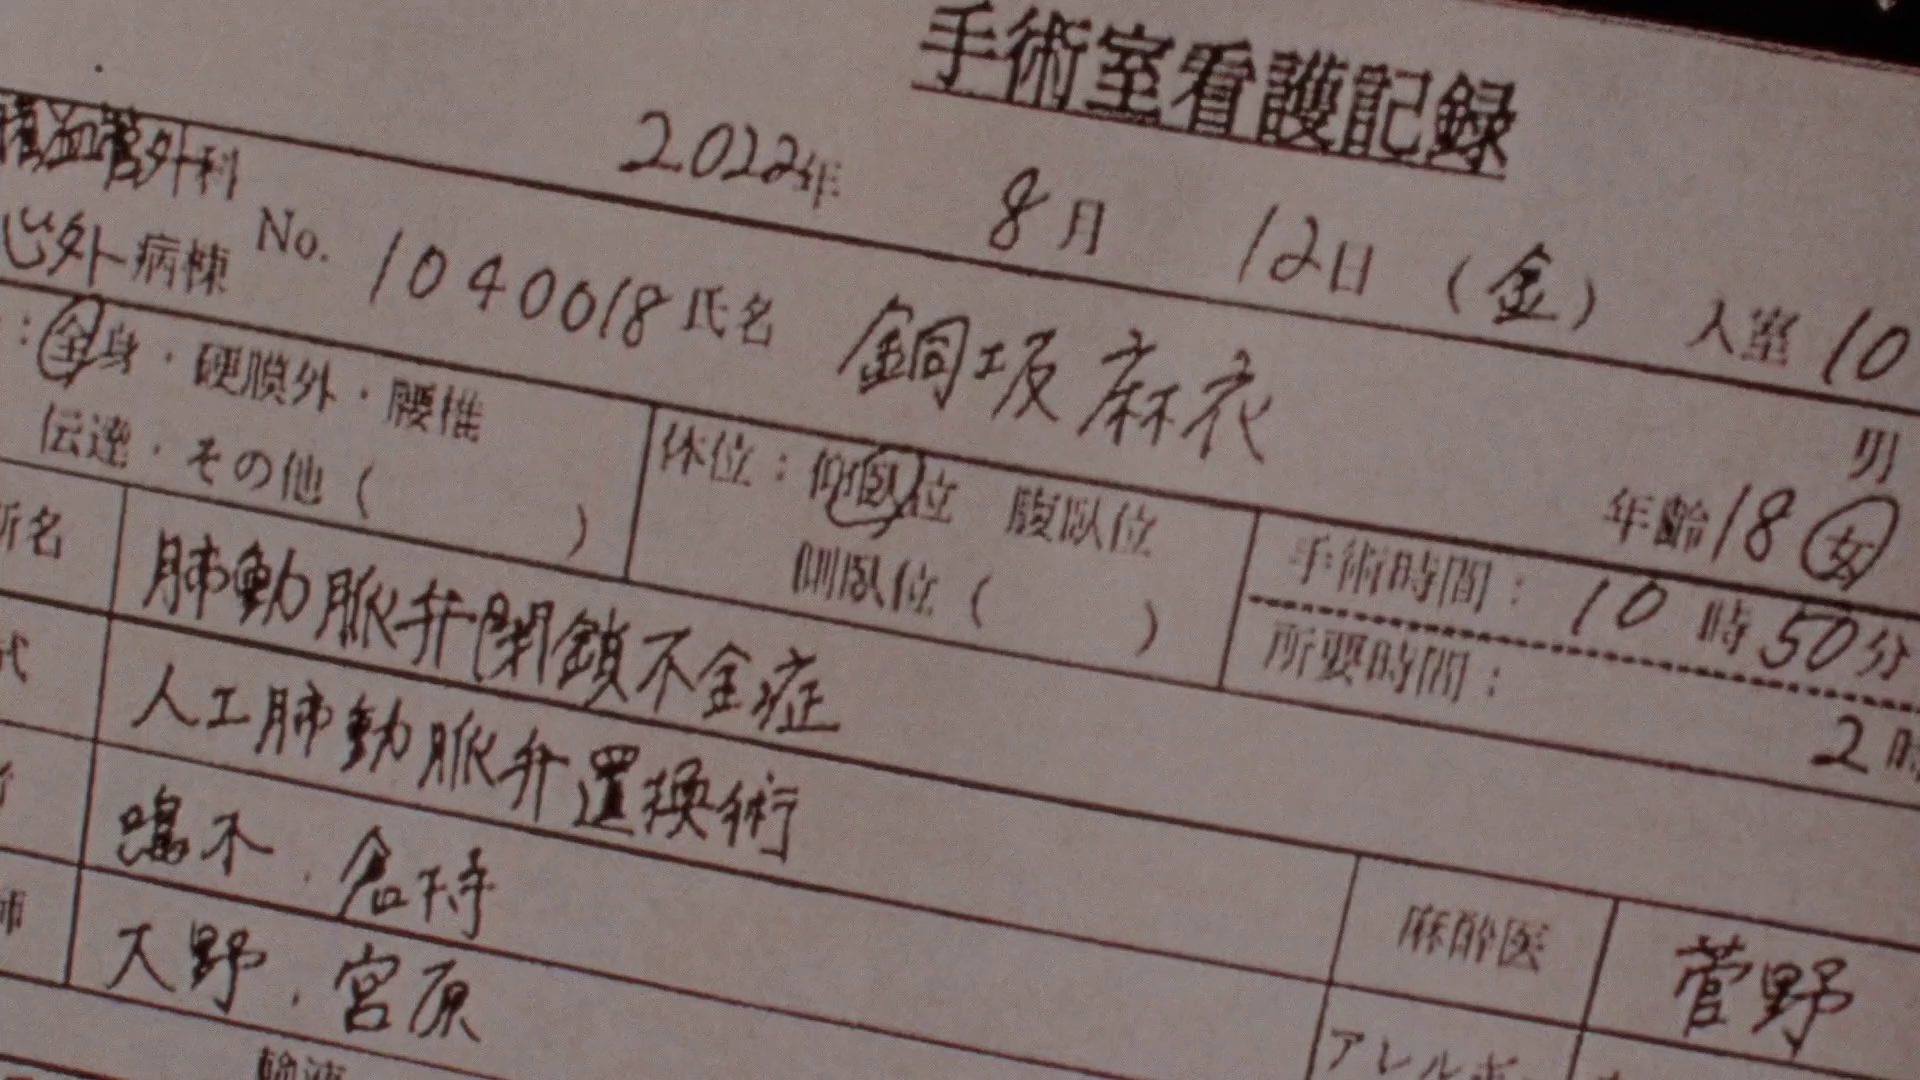 手術室看護記録
2022年 8月 12日 (金) 入室 10
血管外科
心外病棟 No. 1040018 氏名 銅坂麻衣 年齢 18 男 女
: 全身・硬膜外・腰椎
伝達・その他 ( )
体位: 仰臥位 腹臥位
側臥位 ( )
手術時間: 10時50分
所要時間: 2時
名 肺動脈弁閉鎖不全症
式 人工肺動脈弁置換術
木.倉持 麻酔医 菅野
師 大野.宮原
輸液